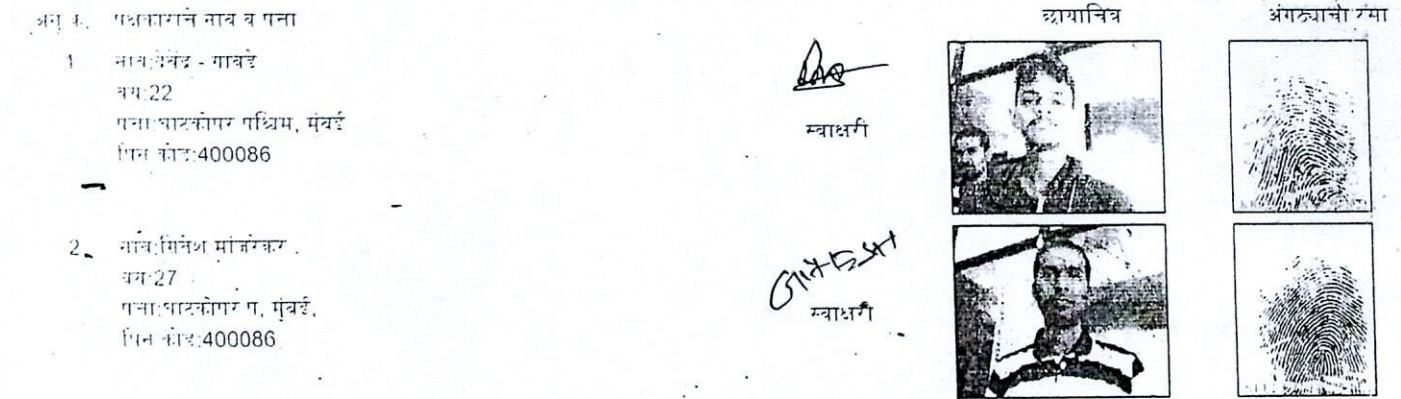 अनु क्र. पक्षकाराचे नाव व पत्ता छायाचित्र अंगठ्याचा ठसा
1 नाव:देवेंद्र - गावडे
वय:22
पत्ता:घाटकोपर पश्चिम, मुंबई
पिन कोड:400086
स्वाक्षरी
2 नाव:गितेश मांजरेकर
वय:27
पत्ता:घाटकोपर प, मुंबई,
पिन कोड:400086
स्वाक्षरी